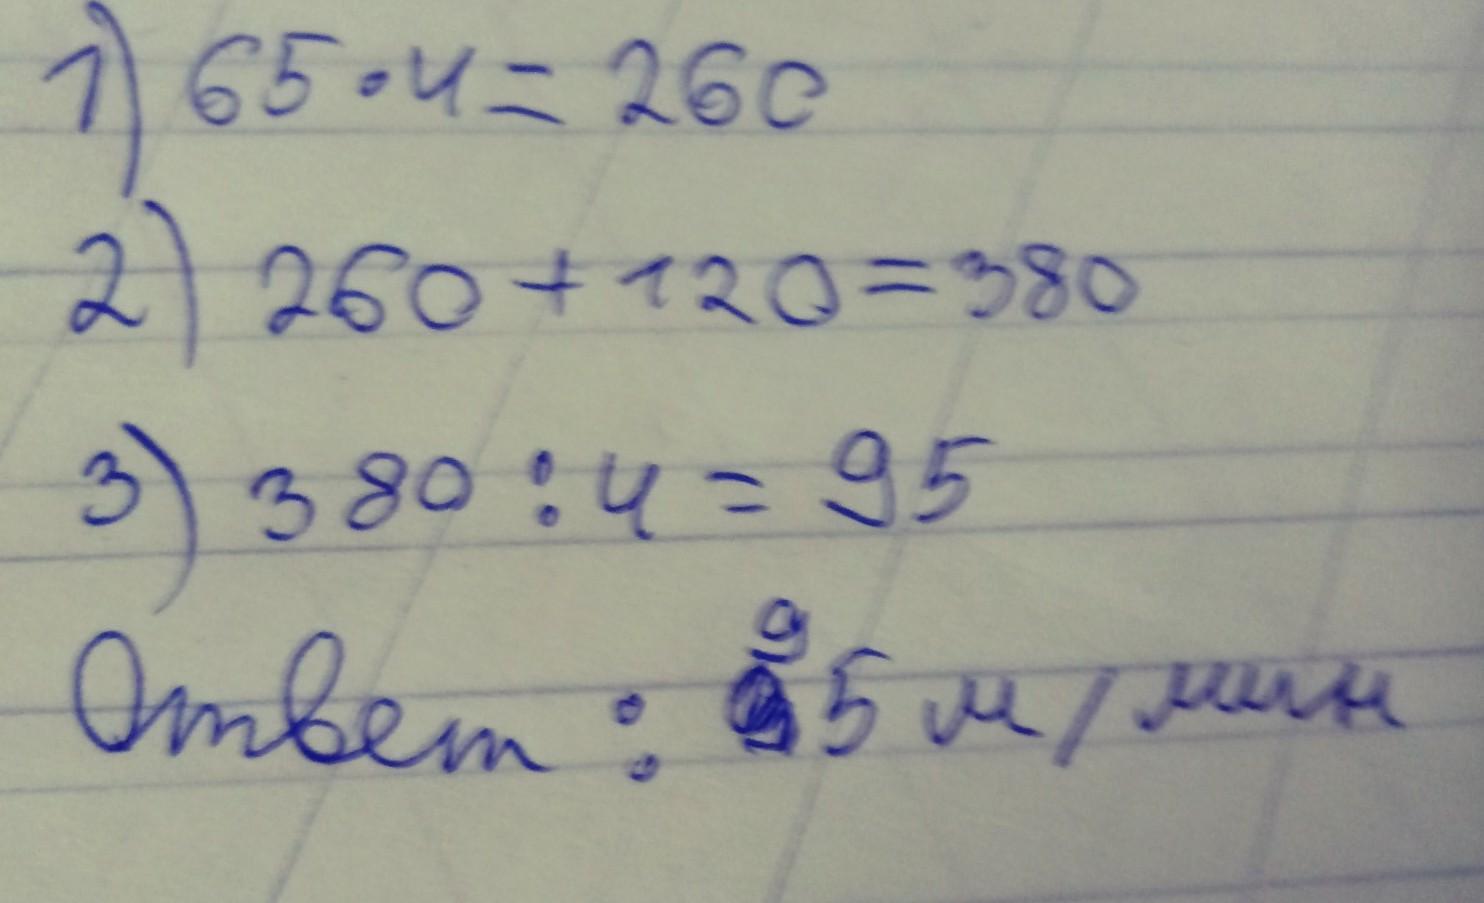 1) 65 · 4 = 260
2) 260 + 120 = 380
3) 380 : 4 = 95
Ответ : 95 м/мин